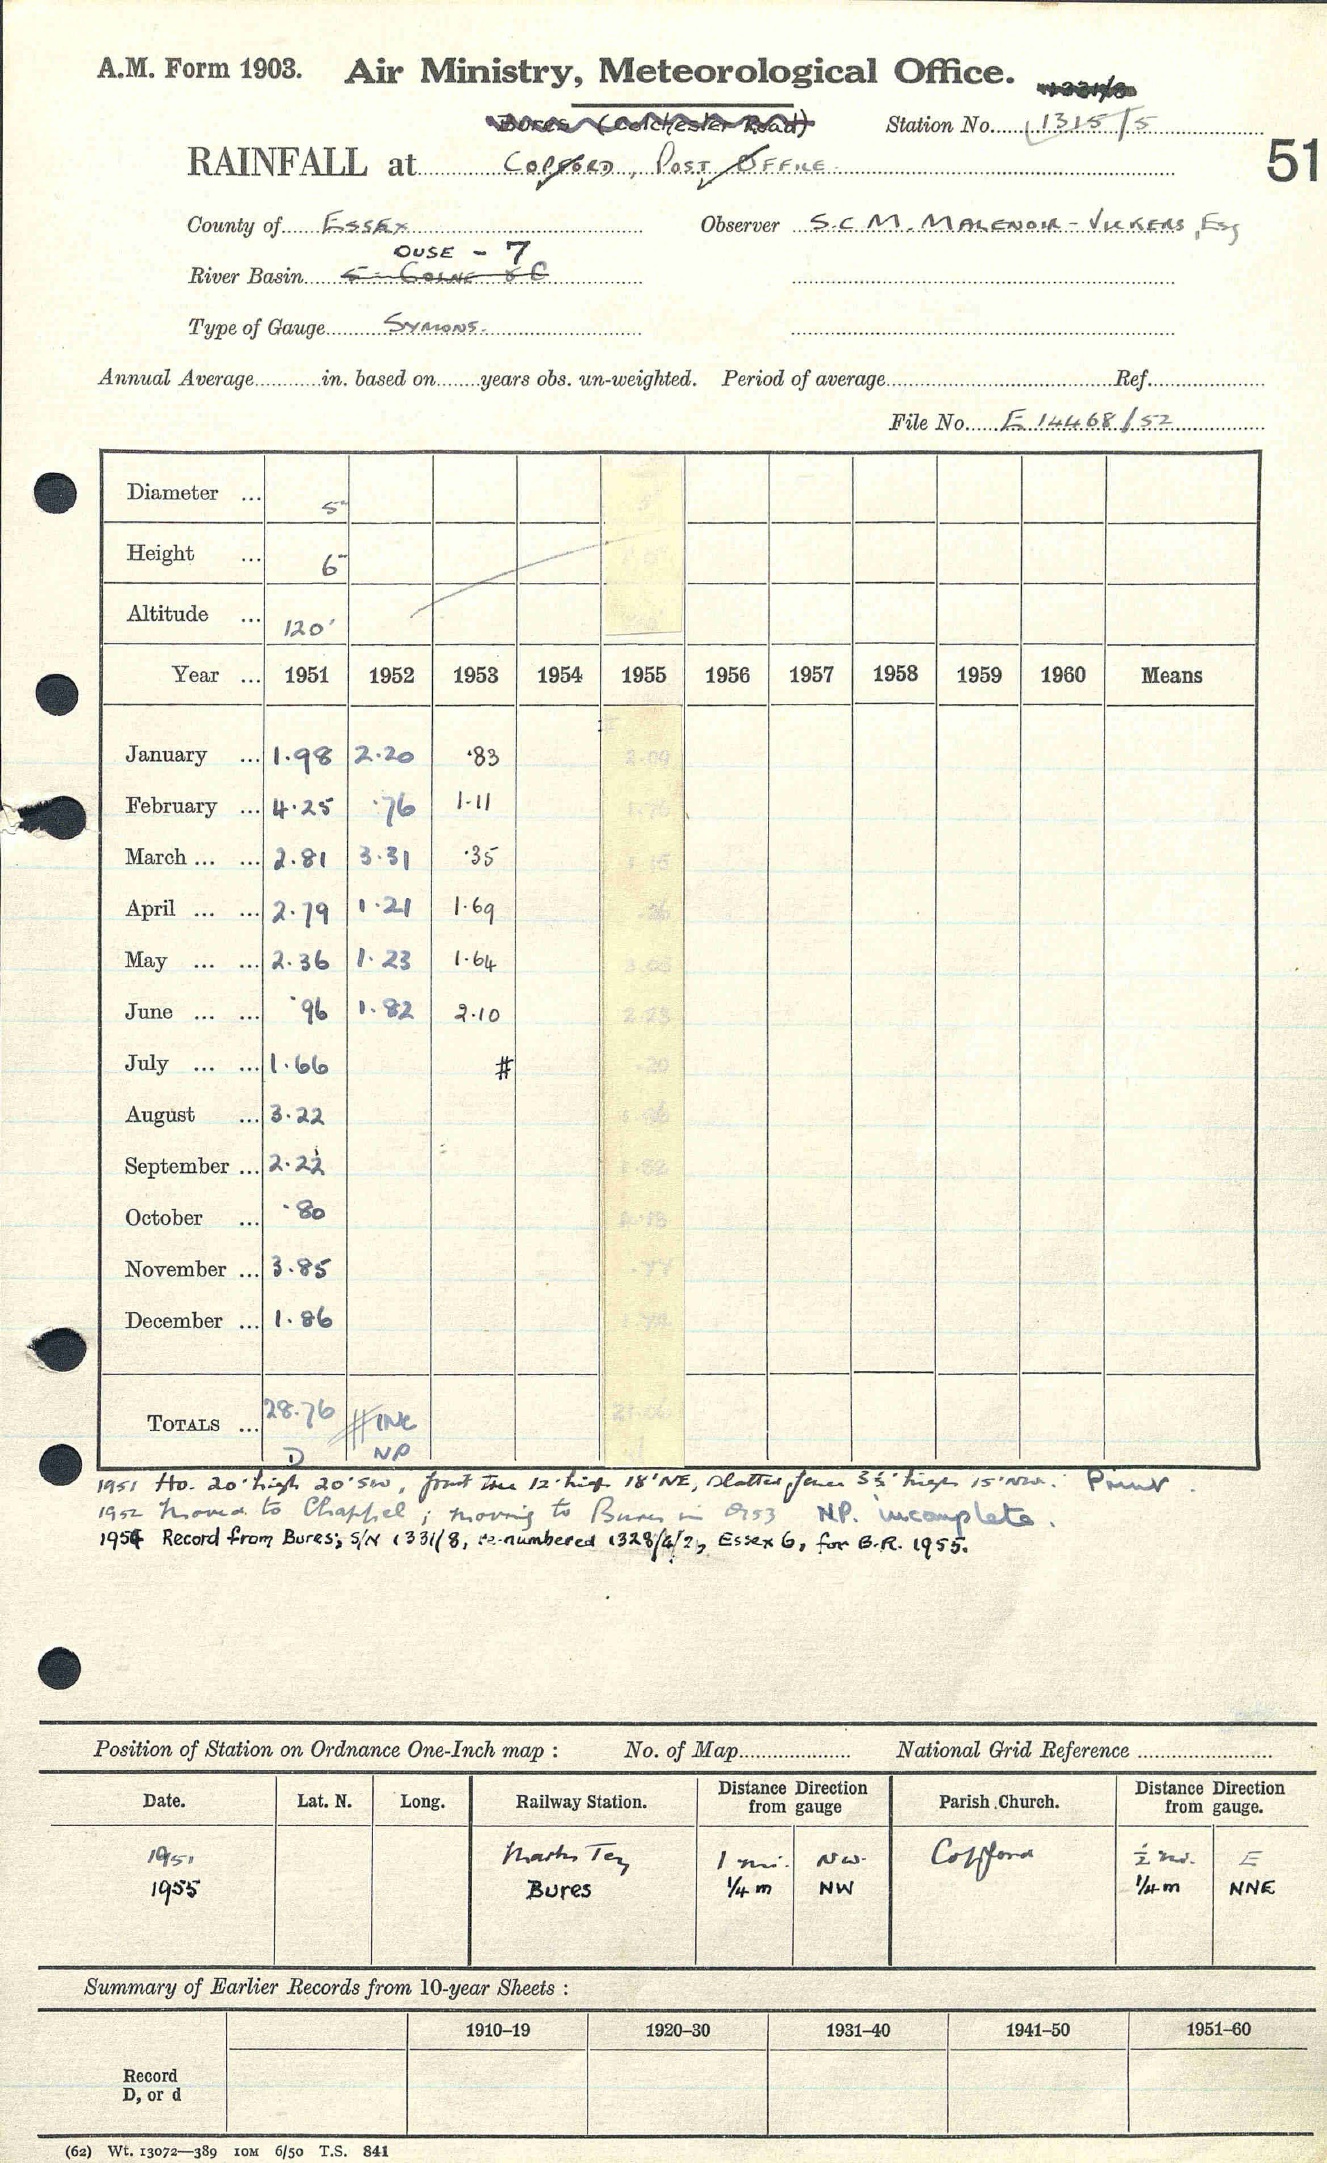 A.M. Form 1903. Air Ministry, Meteorological Office.
Bures (Colchester Road) Station No. 1315/5
RAINFALL at COPFORD, POST OFFICE. 51
County of ESSEX Observer S.C.M. MALENOIR-VICKERS, Esq
OUSE - 7
River Basin
Type of Gauge SYMONS.
Annual Average in. based on years obs. un-weighted. Period of average Ref.
File No. E 14468/52
Diameter ... 5"
Height ... 6"
Altitude ... 120'
Year ... 1951 1952 1953 1954 1955 1956 1957 1958 1959 1960 Means
January ... 1.98 2.20 .83
February ... 4.25 .76 1.11 1.76
March ... ... 2.81 3.31 .35 1.15
April ... ... 2.79 1.21 1.69
May ... ... 2.36 1.23 1.64
June ... ... .96 1.82 2.10 2.23
July ... ... 1.66 # .20
August ... 3.22
September ... 2.22 1.82
October ... .80
November ... 3.85
December ... 1.86
TOTALS ... 28.76 # INC
D NP
1951 Ho. 20' high 20' SW, fruit tree 12' high 18' NE, slatted fence 3½' high 15' NW.
1952 Moved to Chappel; moving to Bures in 1953 NP. incomplete.
1954 Record from Bures; S/N 1331/8, re-numbered 1328/4/2, Essex 6, for B.R. 1955.
Position of Station on Ordnance One-Inch map : No. of Map National Grid Reference
Date. Lat. N. Long. Railway Station. Distance from gauge Direction Parish Church. Distance from gauge. Direction
1951 Marks Tey 1 mi. NW. Copford ½ mi. E
1955 Bures 1/4 m NW 1/4 m NNE
Summary of Earlier Records from 10-year Sheets :
1910–19 1920–30 1931–40 1941–50 1951–60
Record
D, or d
(62) Wt. 13072—389 10M 6/50 T.S. 841